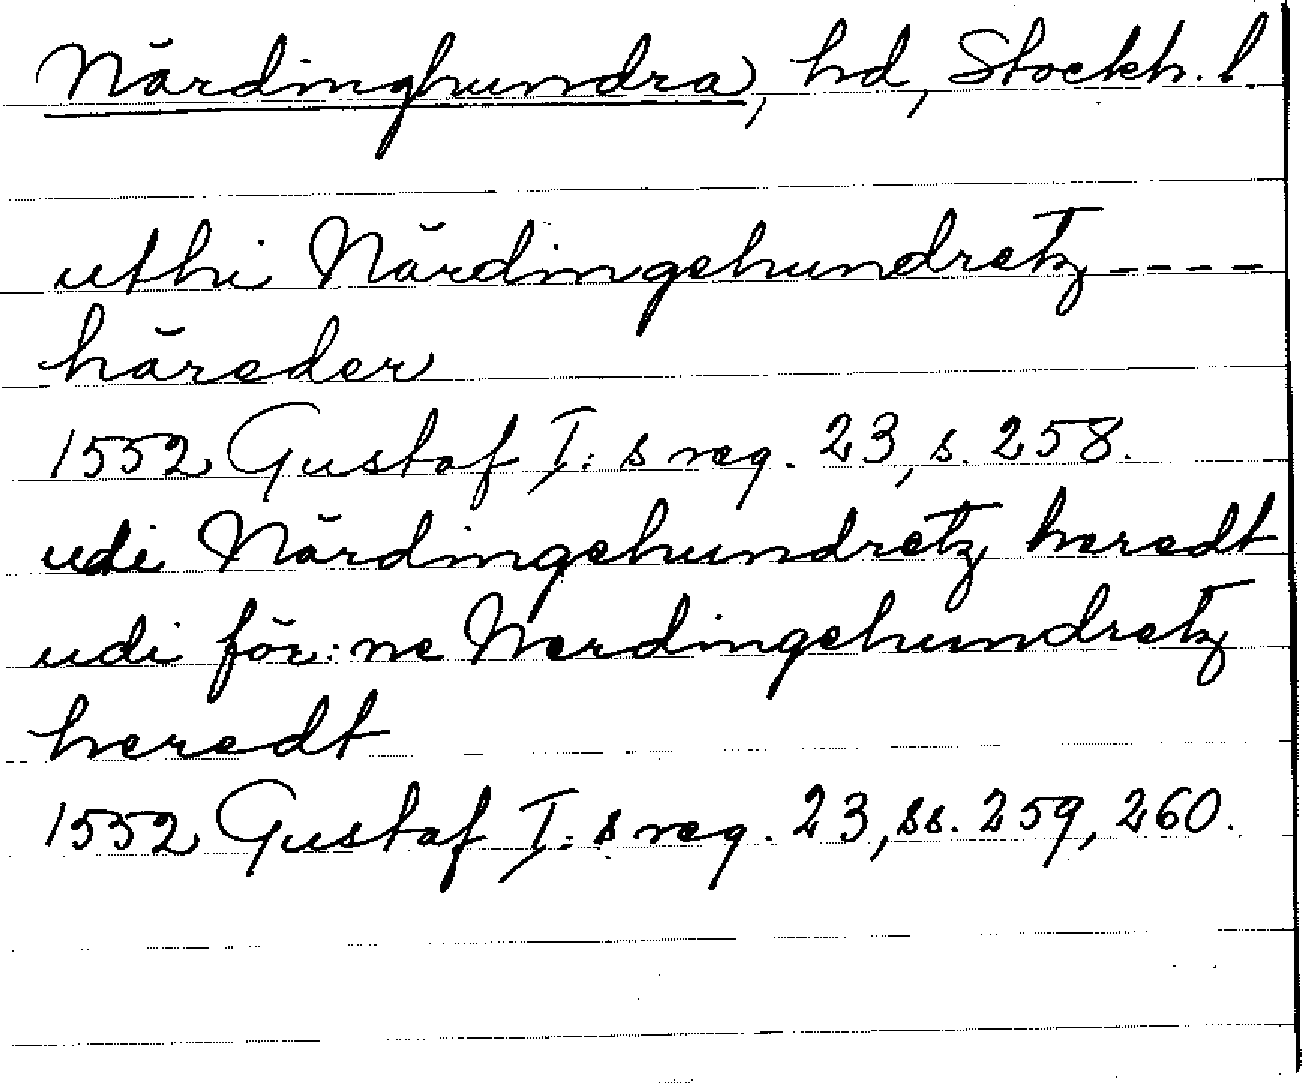 Närdinghundra, hd, Stockh. l
uthi Närdingehundretz ----
häreder
1552 Gustaf I:s reg. 23, s. 258.
udi Närdingehundretz heredt
udi för:ne Nerdingehundretz
heredt
1552 Gustaf I:s reg. 23, ss. 259, 260.